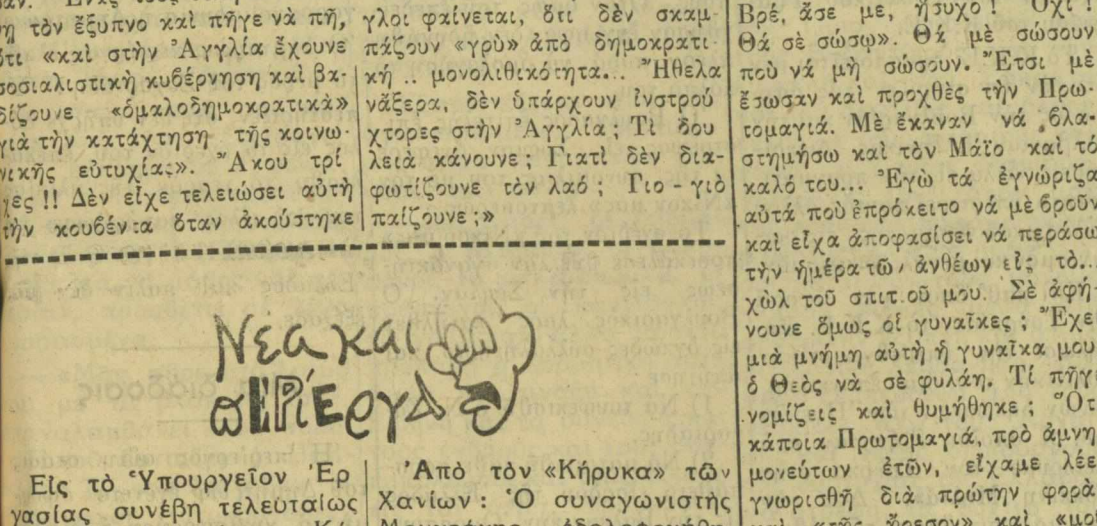 τὸν ἔξυπνο καὶ πῆγε νὰ πῇ,
ὅτι «καὶ στὴν Ἀγγλία ἔχουνε
σοσιαλιστικὴ κυβέρνηση καὶ βα-
δίζουνε «ὁμαλοδημοκρατικὰ»
γιὰ τὴν κατάχτηση τῆς κοινω-
νικῆς εὐτυχίας». Ἄκου τρί
χες !! Δὲν εἶχε τελειώσει αὐτὴ
τὴν κουβέντα ὅταν ἀκούστηκε
γλοι φαίνεται, ὅτι δὲν σκαμ-
πάζουν «γρὺ» ἀπὸ δημοκρατι-
κή .. μονολιθικότητα... Ἤθελα
νάξερα, δὲν ὑπάρχουν ἰνστρού
χτορες στὴν Ἀγγλία ; Τὶ δου
λειὰ κάνουνε ; Γιατὶ δὲν δια-
φωτίζουνε τὸν λαό ; Γιο - γιὸ
παίζουνε ;»
Νέα και
πΕΡίΕργα
Εἰς τὸ Ὑπουργεῖον Ἐρ
γασίας συνέβη τελευταίως
Ἀπὸ τὸν «Κήρυκα» τῶν
Χανίων : Ὁ συναγωνιστὴς
Βρέ, ἄσε με, ἥσυχο ! Ὄχι !
Θά σὲ σώσω». Θά μὲ σώσουν
ποὺ νά μὴ σώσουν. Ἔτσι μὲ
ἔσωσαν καὶ προχθὲς τὴν Πρω-
τομαγιά. Μὲ ἔκαναν νά βλα-
στημήσω καὶ τὸν Μάϊο καὶ τό
καλό του... Ἐγὼ τά ἐγνώριζα
αὐτά ποὺ ἐπρόκειτο νά μὲ βροῦν
καὶ εἶχα ἀποφασίσει νά περάσω
τὴν ἡμέρα τῶν ἀνθέων εἰς τὸ...
χὼλ τοῦ σπιτιοῦ μου. Σὲ ἀφή-
νουνε ὅμως οἱ γυναῖκες ; Ἔχει
μιὰ μνήμη αὐτὴ ἡ γυναῖκα μου
ὁ Θεὸς νὰ σὲ φυλάη. Τί πῆγε
νομίζεις καὶ θυμήθηκε ; Ὅτι
κάποια Πρωτομαγιά, πρὸ ἀμνη-
μονεύτων ἐτῶν, εἴχαμε λέει
γνωρισθῆ διὰ πρώτην φορὰ